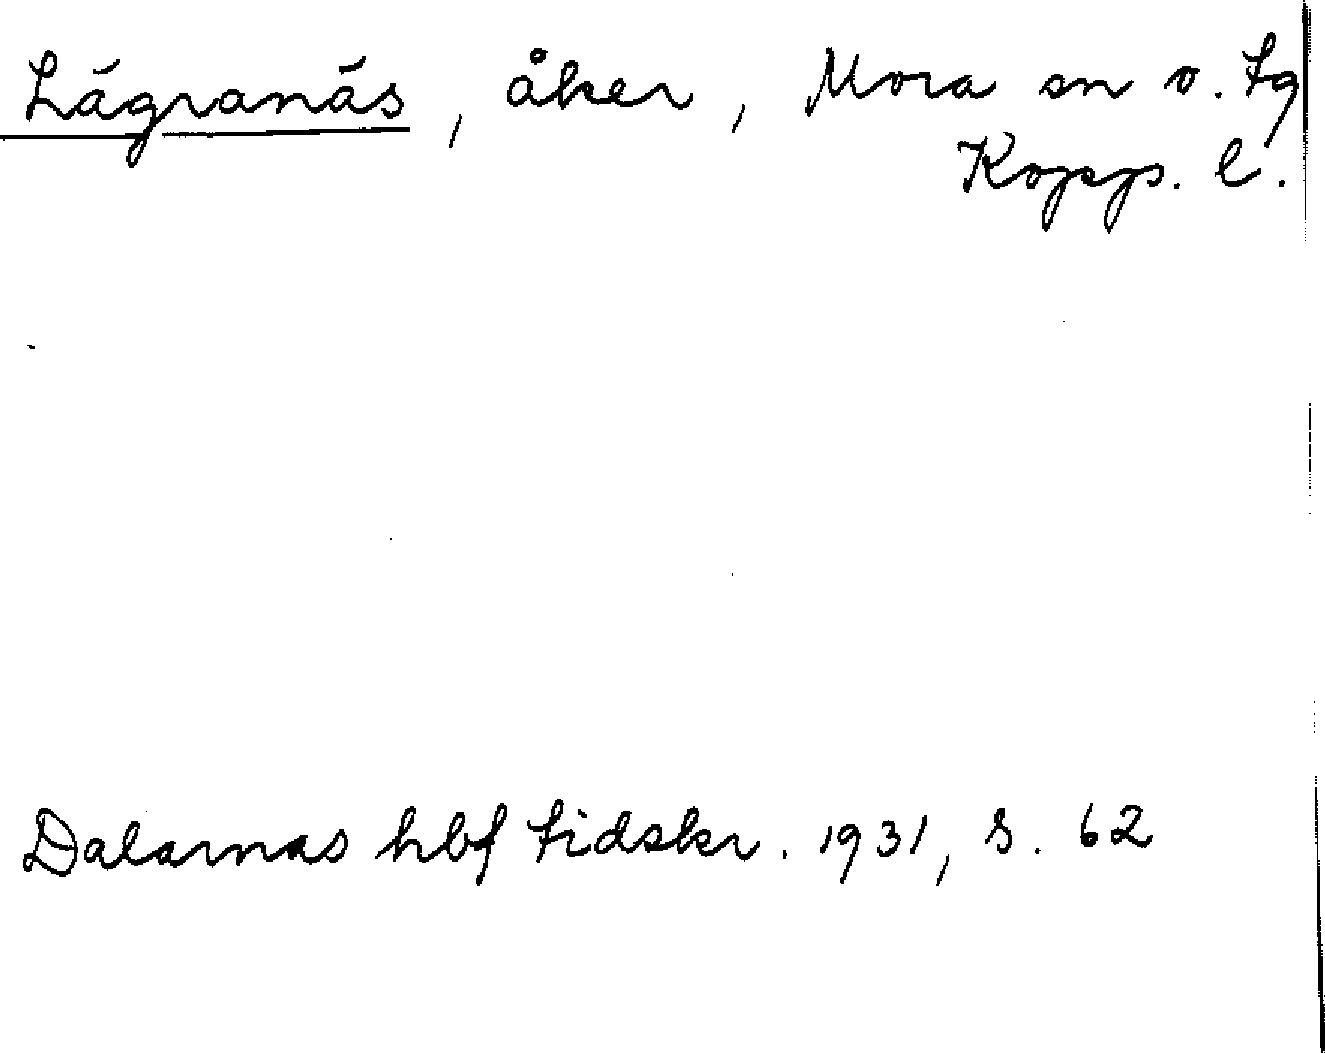 Lägranäs, åker, Mora sn o. tg
Kopp. l.
Dalarnas hbf tidskr. 1931, s. 62